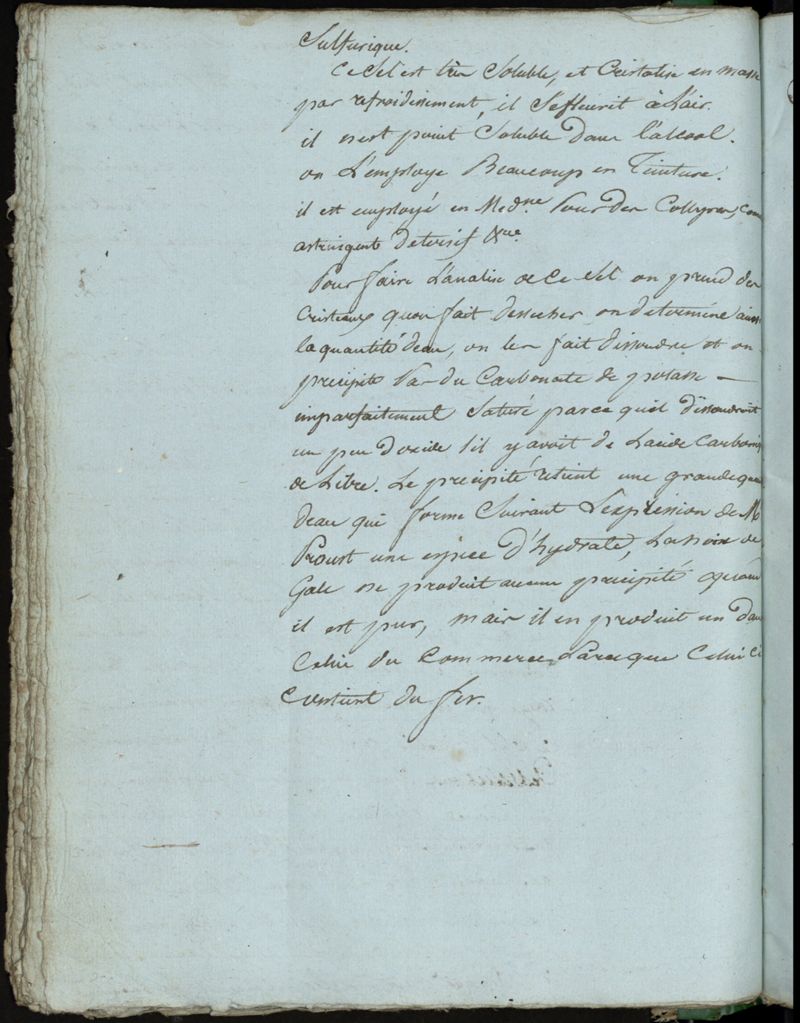 Sulfurique.
Ce Sel est très Soluble, et Cristalise en masse
par refroidissement, il S'efleurit à L'air.
il n'est point Soluble dans l'alcool.
on L'employe Beaucoup en Teinture.
il est employé en Medne Pour des Collyres, com
astringent detersif &ce
Pour faire L'analise de Ce Sel on prend des
Cristaux qu'on fait dessecher on determine ainsi
la quantité d'eau, on les fait dissoudre et on
precipite Par du Carbonate de potasse –
imparfaitement Saturé parce qu'il dissoudroit
un peu d'oxide s'il y avoit de L'acide Carboniq
de Libre. Le precipité retient une grande qua
d'eau qui forme Suivant L'expression de M
Proust une espece d'hydrate, La noix de
Gale ne produit aucun precipité quand
il est pur, mais il en produit un dans
Celui du Commerce, Parceque Celui ci
Contient du fer.